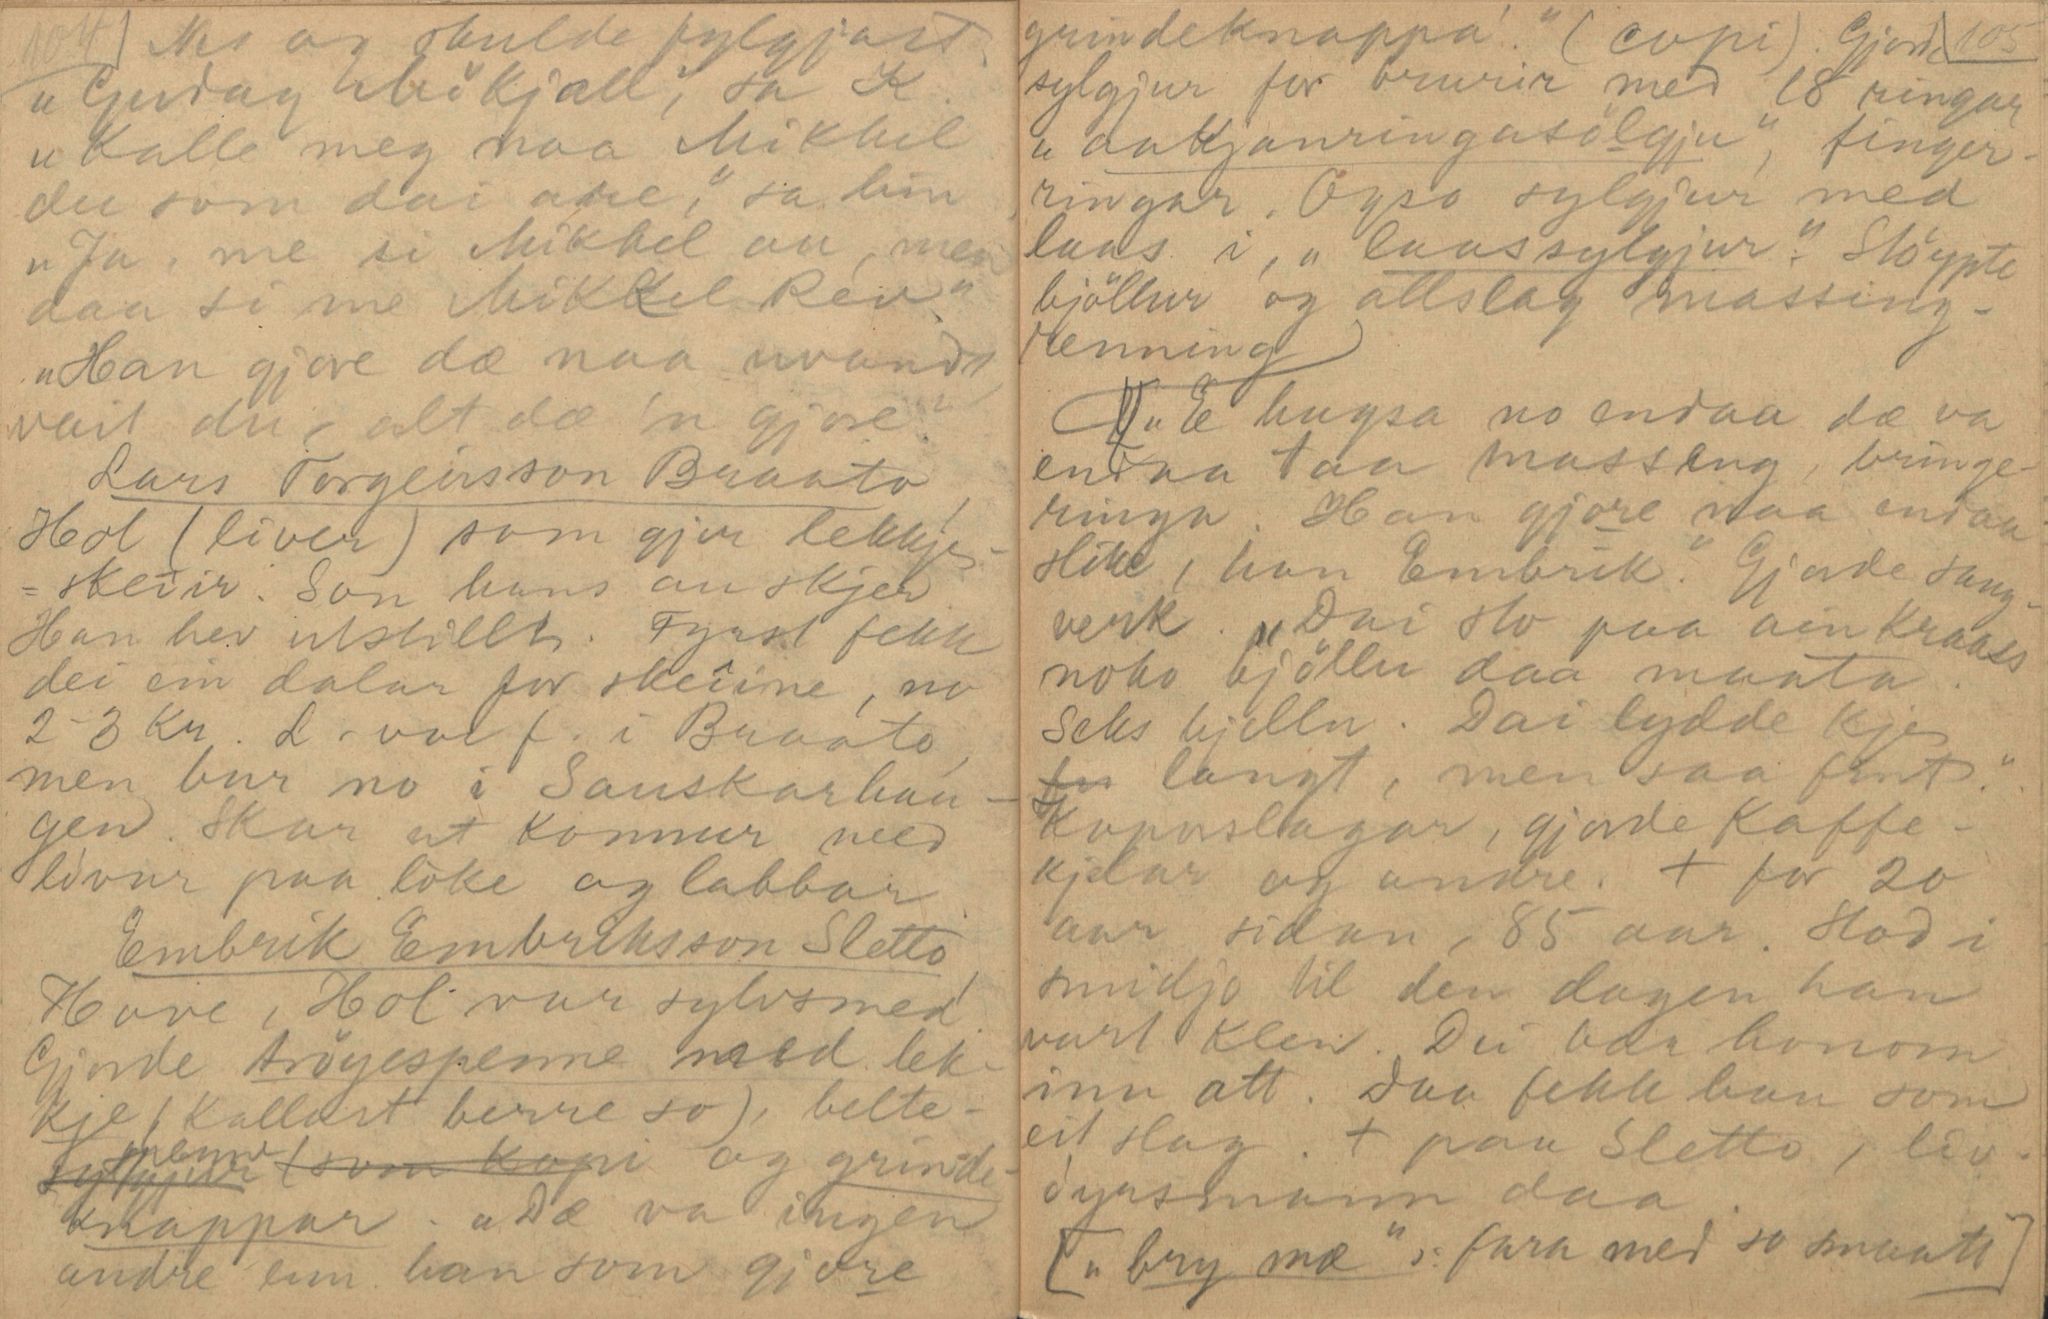 104] Me og skulde fylgjast
"Gudag Mikjæll," sa K.
"Kalle meg naa Mikkel
du som dai are," sa hin
"Ja, me si Mikkel au, men
daa si me Mikkel Rev."
"Han gjore dæ naa uvandt,
vait du, alt dæ 'n gjore."
Lars Torgeirsson Braato,
Hol (liver) som gjer lekkje-
=skeiir. Son hans au skjer
Han hev utstillt. Fyrst fekk
dei ein dalar for skeiine, no
2-3 Kr. L. var f. i Braato,
men bur no i Sauskarhau-
gen. Skar ut konnur med
livur paa loke og labbar
Embrik Embriksson Sletto,
Hove, Hol var sylvsmed.
Gjorde tröyespenne med lek-
kje (kallast berre so), belte-
spenne
sylgjur (som kopi og grinde-
knappar. "Dæ va ingen
andre enn han som gjore
[105
grindeknappa." (copi). Gjorde
sylgjur for brurir med 18 ringar
"aakjanringasölgju", finger-
ringar. Ogso sylgjur med
laas i, "laassylgjur". Stöypte
bjöllur og allslag massing-
renning
"E hugsa no endaa dæ va
endaa taa massing, bringe-
ringa. Han gjore naa endaa
slike, han Embrik." Gjorde saug-
verk. "Dai slo paa ain kraass
noko bjöllu daa maata.
Seks bjellu. Dai lydde kje
so langt, men saa fint."
Koparslagar, gjorde Kaffe-
kjelar og andre. + for 20
aar sidan, 85 aar. Stod i
smidjo til den dagen han
vart klen. Dei bar honom
inn att. Daa fekk han som
eit slag. + paa Sletto, liv-
öyrsmann daa.
["bry mæ": fara med so smaatt]